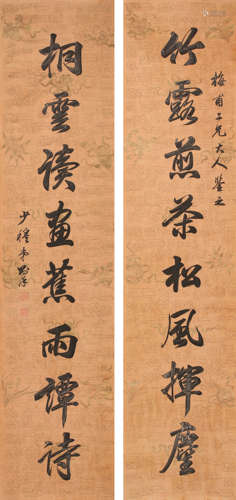 梅甫二兄大人鑒之
竹露煎茶松風揮麈
桐雲讀畫蕉雨譚詩
少